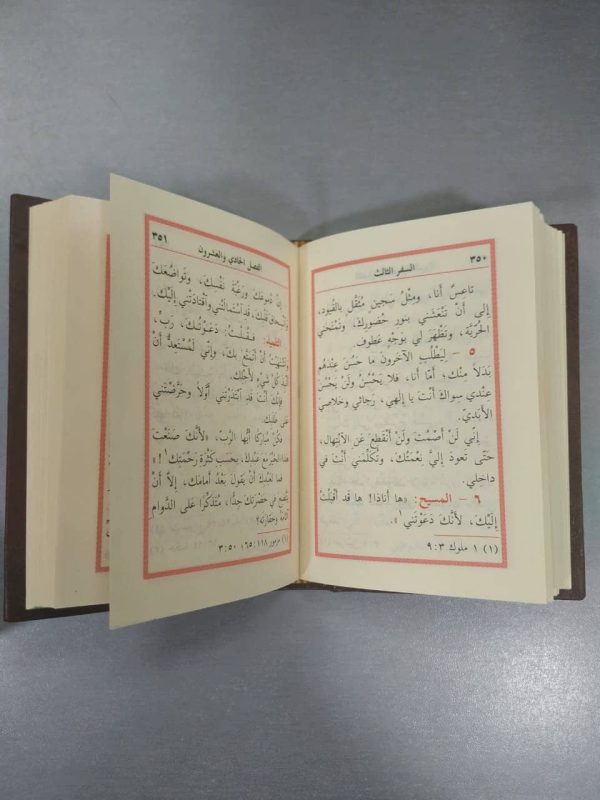 ٣٥٠ السفر الثالث
تاعسٌ أنا، ومثْلُ سَجينٍ مُثْقَلٍ بالقُيود،
إلى أَنْ تُنْعِشَني بنورِ حُضورِكَ، وتَمْنَحَني
الحُرِّيَّة، وتُظْهِرَ لي بوَجْهٍ عَطوف.
٥ – لِيَطْلُبِ الآخرونَ ما حَسُنَ عندَهم
بَدَلاً مِنْك؛ أمّا أنا، فلا يَحْسُنُ ولَنْ يَحْسُنَ
عندي سِواكَ أنْتَ يا إلهي، رَجائي وخلاصي
الأبَديّ.
إنّي لَنْ أَصْمُتَ ولَنْ أَنْقَطِعَ عَنِ الابْتِهال،
حَتّى تَعودَ إليَّ نِعْمَتُكَ، وتُكَلِّمَني أنْتَ في
داخلي.
٦ – المسيح: «ها أنَاذا! ها قد أقْبَلْتُ
إلَيْكَ، لأنَّكَ دَعَوْتَني١».
(١) ١ ملوك ٣: ٩
الفصل الحادي والعشرون ٣٥١
إنَّ دُموعَكَ ورَغْبَةَ نَفْسِكَ، وتَواضُعَكَ
قَلْبِكَ، قد اسْتَمالَتْني واقْتادَتْني إلَيْك.
التلميذ: فَقُلْتُ: دَعَوْتُكَ، رَبِّ،
واشْتَهَيْتُ أنْ أتَمَتَّعَ بكَ، وإنّي لَمُسْتَعِدٌّ أنْ
كُلَّ شَيْءٍ لأجْلِك.
فإنَّكَ أنْتَ قد ابْتَدَرْتَني أوَّلاً وحَرَّضْتَني
على طَلَبِك.
فكُنْ مُبارَكًا أيُّها الرَّبُّ، «لأنَّكَ صَنَعْتَ
هذا الخَيْرَ مع عَبْدِكَ، بحَسَبِ كَثْرَةِ رَحْمَتِك١!»
فما لِعَبْدِكَ أنْ يَقولَ بَعْدُ أمامَك، إلاّ أنْ
في حَضْرَتِكَ جِدًّا، مُتَذَكِّرًا على الدَّوامِ
وحَقارَتَه؟
(١) مزمور ١١٨: ١٦٥ ٥٠: ٣